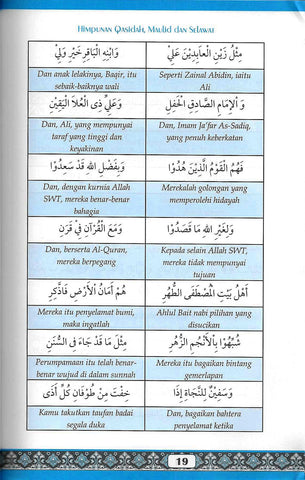 HIMPUNAN QASIDAH, MAULID DAN SELAWAT
مِثْلُ زَيْنِ الْعَابِدِيْنَ عَلِيْ
وَابْنِهِ الْبَاقِرِ خَيْرِ وَلِيْ
Seperti Zainal Abidin, iaitu
Ali
Dan anak lelakinya, Baqir, itu
sebaik-baiknya wali
وَ الْإِمَامِ الصَّادِقِ الْحَفِلِ
وَعَلِيِّ ذِى الْعُلَا الْيَقِيْنِ
Dan, Imam Ja'far As-Sadiq,
yang penuh keberkatan
Dan, Ali, yang mempunyai
taraf yang tinggi dan
keyakinan
فَهُمُ الْقَوْمُ الَّذِيْنَ هُدُوْا
وَبِفَضْلِ اللهِ قَدْ سَعِدُوْا
Merekalah golongan yang
memperolehi hidayah
Dan, dengan kurnia Allah
SWT, mereka benar-benar
bahagia
وَلِغَيْرِ اللهِ مَا قَصَدُوْا
وَمَعَ الْقُرْآنِ فِيْ قَرَنِ
Kepada selain Allah SWT,
mereka tidak mempunyai
tujuan
Dan, berserta Al-Quran,
mereka berpegang
أَهْلُ بَيْتِ الْمُصْطَفَى الطُّهُرِ
هُمْ أَمَانُ الْأَرْضِ فَادَّكِرِ
Ahlul Bait nabi pilihan yang
disucikan
Mereka itu penyelamat bumi,
maka ingatlah
شُبِّهُوْا بِالْأَنْجُمِ الزُّهُرِ
مِثْلَ مَا قَدْ جَاءَ فِى السُّنَنِ
Mereka itu bagaikan bintang
gemerlapan
Perumpamaan itu telah benar-
benar wujud di dalam sunnah
وَسَفِيْنٌ لِلنَّجَاةِ إِذَا
خِفْتَ مِنْ طُوْفَانِ كُلِّ أَذَى
Dan, bagaikan bahtera
penyelamat ketika
Kamu takutkan taufan badai
segala duka
19